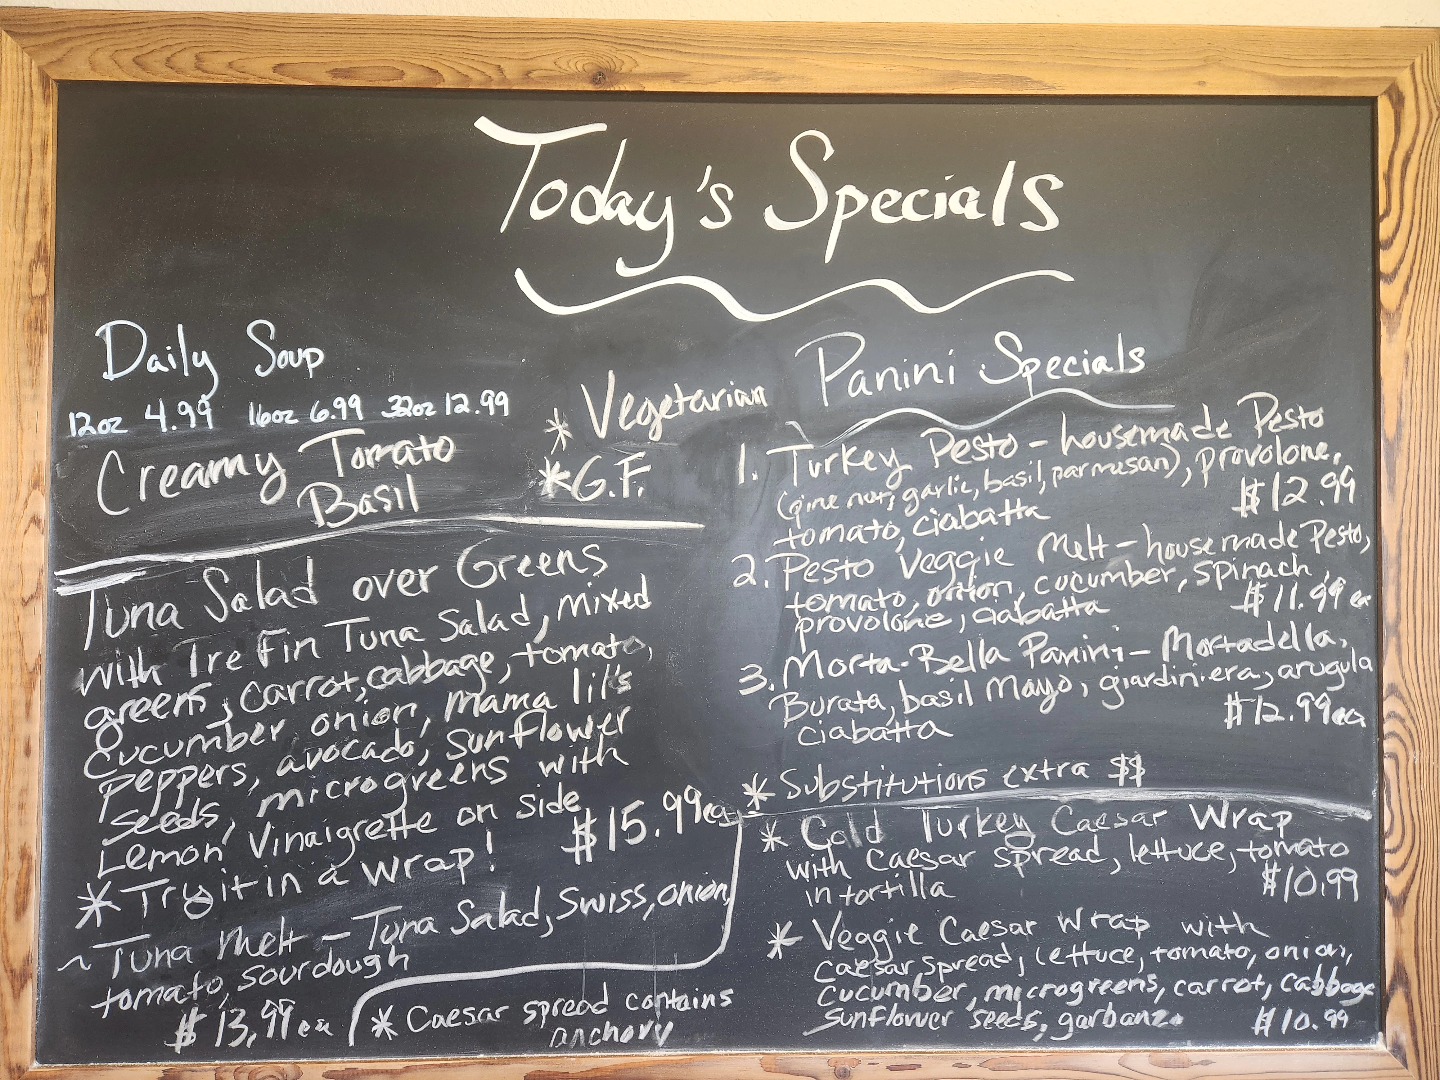 Today's Specials
Daily Soup
12oz 4.99 16oz 6.99 32oz 12.99
Creamy Tomato
Basil
* Vegetarian
* G.F.
Tuna Salad over Greens
with Tre Fin Tuna Salad, mixed
greens, carrot, cabbage, tomato,
Cucumber onion, Mama lil's
peppers, avocado, sunflower
seeds, microgreens with
Lemon Vinaigrette on side
$15.99ea
* Try it in a wrap!
~ Tuna Melt - Tuna Salad, Swiss, onion,
tomato, sourdough
$13.99 ea
* Caesar spread contains
anchovy
Panini Specials
1. Turkey Pesto - housemade Pesto
(pine nut, garlic, basil, parmesan), provolone,
tomato, ciabatta $12.99
2. Pesto Veggie Melt - housemade Pesto,
tomato, onion, cucumber, spinach,
provolone, ciabatta $11.99 ea
3. Morta-Bella Panini - Mortadella,
Burata, basil Mayo, giardiniera, arugula
ciabatta $12.99ea
* Substitutions extra $$
* Cold Turkey Caesar Wrap
with Caesar spread, lettuce, tomato
in tortilla $10.99
* Veggie Caesar Wrap with
Caesar spread, lettuce, tomato, onion,
cucumber, microgreens, carrot, cabbage
sunflower seeds, garbanz. $10.99